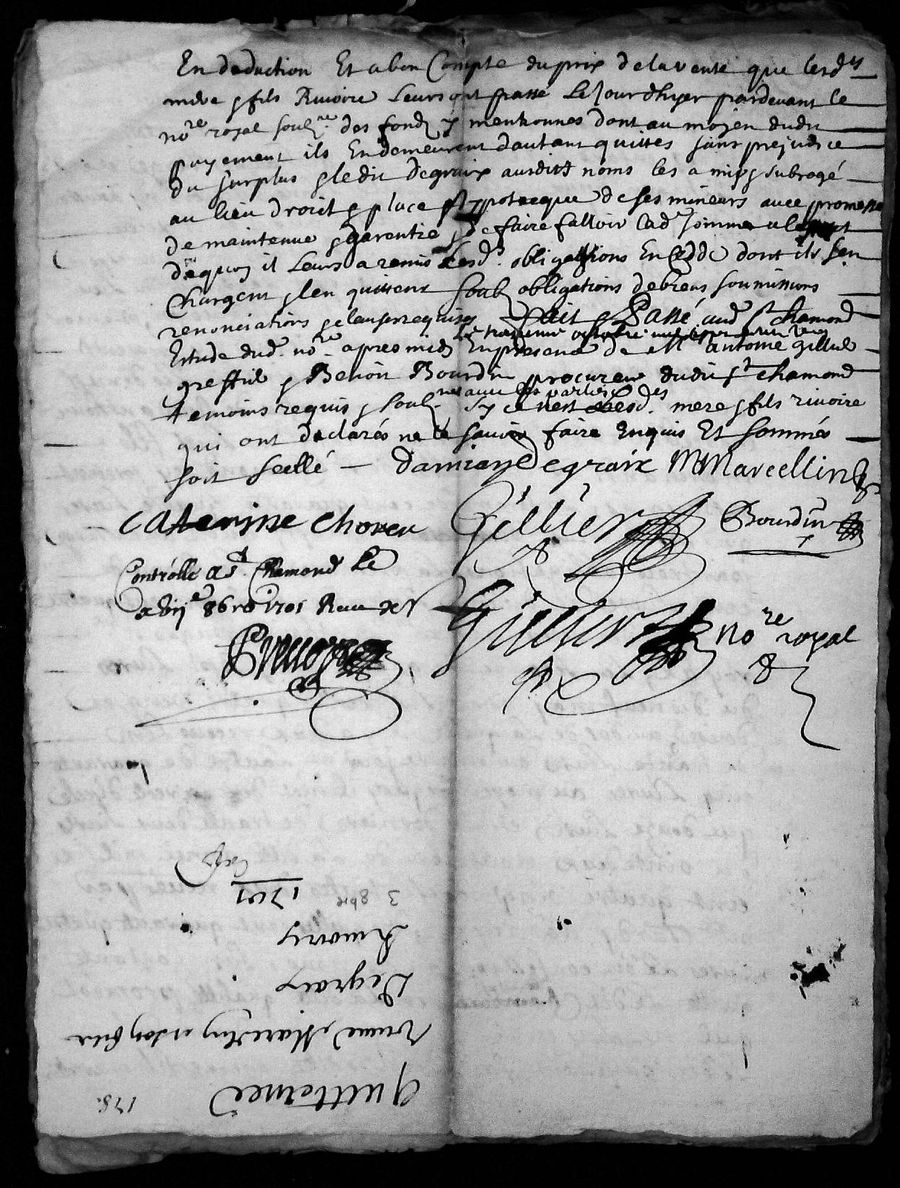 En deduction Et a bon Compte du prix de la vente que lesd.
mere & fils Rivoire Leurs ont passé Le Jourdhyer pardevant le
no.re royal soub.ne des fondz y mentionnes dont au moyen dudit
payement ils En demeurent dautant quittes sans prejudice
du surplus & ledit degraix ausdits noms les a mis & subrogé
au lieu droit & place & hypotecque de ses mineurs avec promesse
de maintenue & garentie & de faire falloir lad. somme
dequoy il Leurs a remis lesd. obligations En dont ils sen
Chargent & len quittent soub obligations de biens soumissions
renonciations & clauses requises fait & Passé aud. St chamond
Estude dud. no.re apres midy En presence de Mr antoine gillier
greffier & Benoit Bourdin procureur dudit St chamond
temoins requis & soub.nes avec les parties sy ce nest lesd. mere & fils rivoire
qui ont declarés ne le savoir faire Enquis Et sommés
soit scellé damian Degraix M Marcellin
Caterine Chorea Gillier Bourdin
Controllé a St. Chamond Le
8bre 1701 Receu
Gillier no.re royal
1701
3 8bre
Rivoiry
Degraix
Marcelin
Quittance
178.